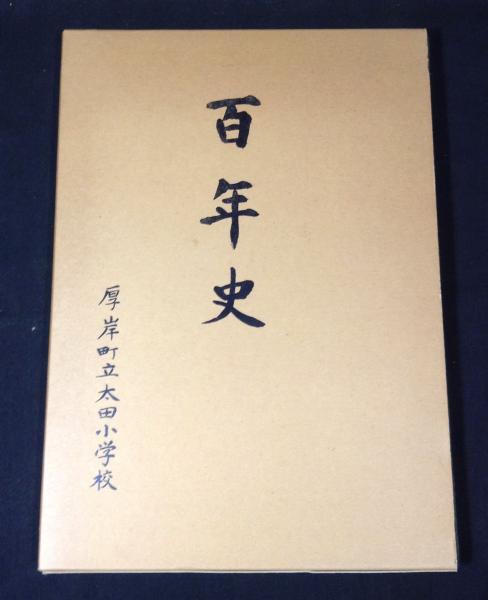 百年史
厚岸町立太田小学校